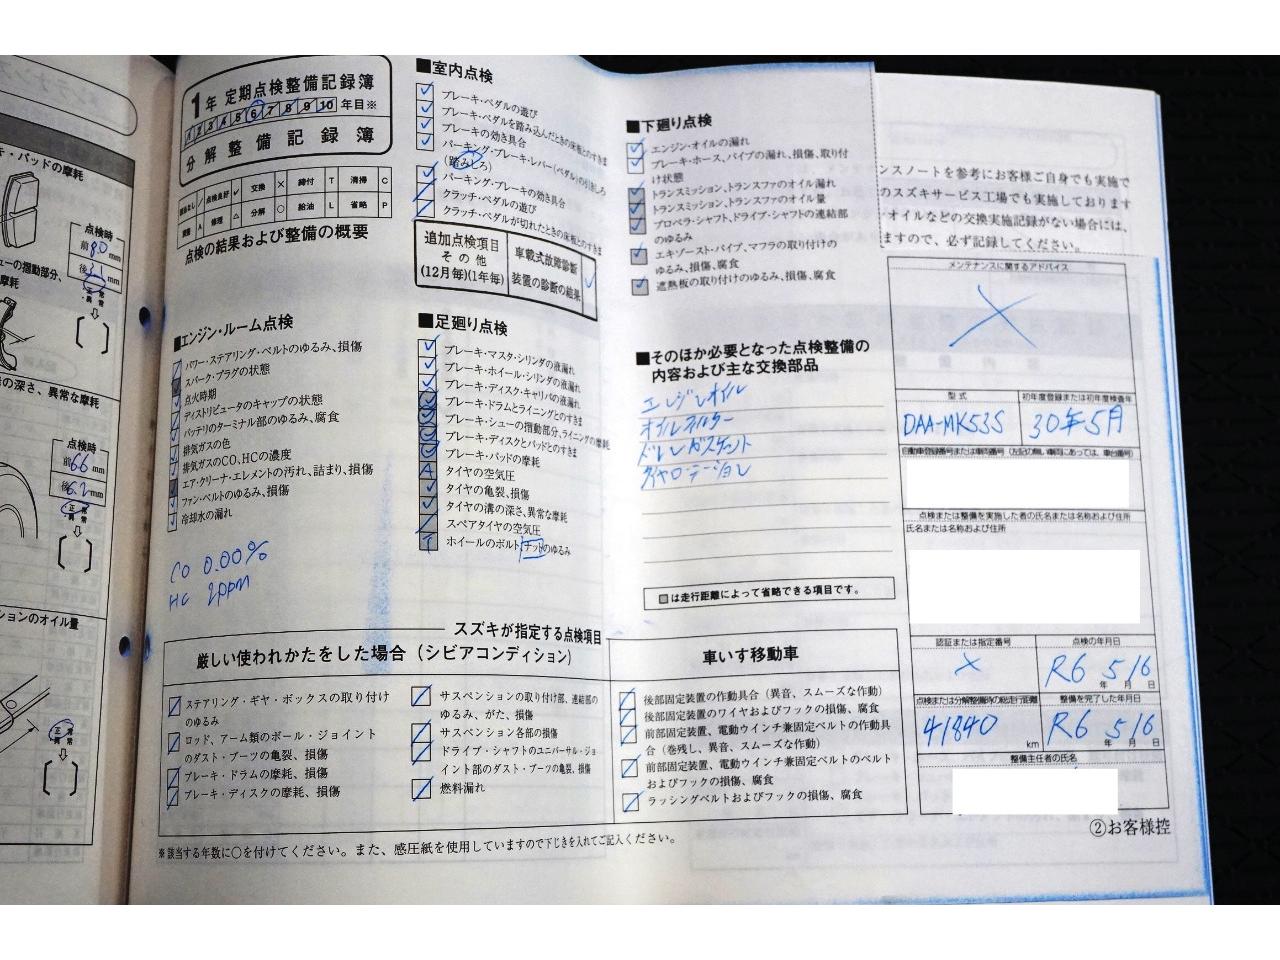 キ・パッドの摩耗
点検時
前 8.0 mm
後 3.1 mm
正常
異常
ューの摺動部分、
摩耗
の深さ、異常な摩耗
点検時
前 6.6 mm
後 6.2 mm
正常
異常
ションのオイル量
正常
異常
1年 定期点検整備記録簿
1 2 3 4 5 6 7 8 9 10 年目※
分解整備記録簿
該当なし / 点検良好 ✓ 交換 × 締付 T 清掃 C
調整 A 修理 △ 分解 ○ 給油 L 省略 P
点検の結果および整備の概要
■エンジン・ルーム点検
パワー・ステアリング・ベルトのゆるみ、損傷
スパーク・プラグの状態
点火時期
ディストリビュータのキャップの状態
バッテリのターミナル部のゆるみ、腐食
排気ガスの色
排気ガスのCO、HCの濃度
エア・クリーナ・エレメントの汚れ、詰まり、損傷
ファン・ベルトのゆるみ、損傷
冷却水の漏れ
CO 0.00%
HC 2ppm
■室内点検
ブレーキ・ペダルの遊び
ブレーキ・ペダルを踏み込んだときの床板とのすきま
ブレーキの効き具合
パーキング・ブレーキ・レバー(ペダル)の引きしろ
(踏みしろ)
パーキング・ブレーキの効き具合
クラッチ・ペダルの遊び
クラッチ・ペダルが切れたときの床板とのすきま
追加点検項目
その他
(12月毎)(1年毎)
車載式故障診断
装置の診断の結果
■足廻り点検
ブレーキ・マスタ・シリンダの液漏れ
ブレーキ・ホイール・シリンダの液漏れ
ブレーキ・ディスク・キャリパの液漏れ
ブレーキ・ドラムとライニングとのすきま
ブレーキ・シューの摺動部分、ライニングの摩耗
ブレーキ・ディスクとパッドとのすきま
ブレーキ・パッドの摩耗
タイヤの空気圧
タイヤの亀裂、損傷
タイヤの溝の深さ、異常な摩耗
スペアタイヤの空気圧
ホイールのボルト、ナットのゆるみ
■下廻り点検
エンジン・オイルの漏れ
ブレーキ・ホース、パイプの漏れ、損傷、取り付
け状態
トランスミッション、トランスファのオイル漏れ
トランスミッション、トランスファのオイル量
プロペラ・シャフト、ドライブ・シャフトの連結部
のゆるみ
エキゾースト・パイプ、マフラの取り付けの
ゆるみ、損傷、腐食
遮熱板の取り付けのゆるみ、損傷、腐食
■そのほか必要となった点検整備の
内容および主な交換部品
エンジンオイル
オイルフィルター
ドレンガスケット
タイヤローテーション
□は走行距離によって省略できる項目です。
ンスノートを参考にお客様ご自身でも実施で
のスズキサービス工場でも実施しております
・オイルなどの交換実施記録がない場合には、
ますので、必ず記録してください。
メンテナンスに関するアドバイス
型式
初年度登録または初年度検査年
DAA-MK53S
30年5月
自動車登録番号または車両番号(左記の無い車両にあっては、車台番号)
点検または整備を実施した者の氏名または名称および住所
氏名または名称および住所
認証または指定番号
点検の年月日
R6 5/6
年 月 日
点検または分解整備時の総走行距離
整備を完了した年月日
41840 km
R6 5/6
年 月 日
整備主任者の氏名
②お客様控
スズキが指定する点検項目
厳しい使われかたをした場合(シビアコンディション)
ステアリング・ギヤ・ボックスの取り付け
のゆるみ
ロッド、アーム類のボール・ジョイント
のダスト・ブーツの亀裂、損傷
ブレーキ・ドラムの摩耗、損傷
ブレーキ・ディスクの摩耗、損傷
サスペンションの取り付け部、連結部の
ゆるみ、がた、損傷
サスペンション各部の損傷
ドライブ・シャフトのユニバーサル・ジョ
イント部のダスト・ブーツの亀裂、損傷
燃料漏れ
車いす移動車
後部固定装置の作動具合(異音、スムーズな作動)
後部固定装置のワイヤおよびフックの損傷、腐食
前部固定装置、電動ウインチ兼固定ベルトの作動具
合(巻残し、異音、スムーズな作動)
前部固定装置、電動ウインチ兼固定ベルトのベルト
およびフックの損傷、腐食
ラッシングベルトおよびフックの損傷、腐食
※該当する年数に○を付けてください。また、感圧紙を使用していますので下じきを入れてご記入ください。